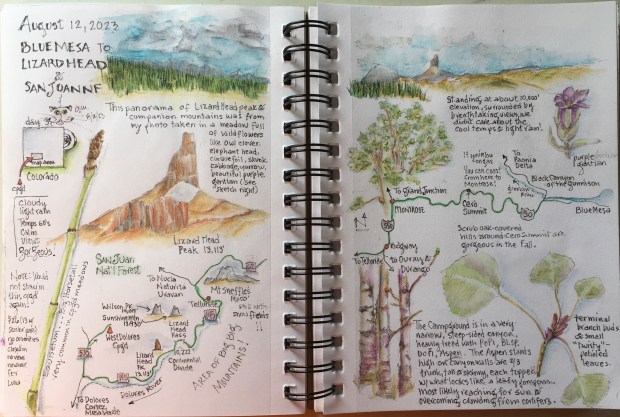 August 12, 2023
BLUE MESA TO
LIZARD HEAD
&
SAN JUAN NF
This panorama of Lizard Head peak &
companion mountains was from
my photo taken in a meadow full
of wildflowers
like owl clover,
elephant head,
cinquefoil, skunk
cabbage, yarrow,
beautiful purple
gentian (see
sketch right)
map area
Colorado
cpgd
Cloudy
light rain
Temps 60's
Calm
Views
Gorgeous.
Note: would
not stay in
this cpgd
again!
Lizard Head
Peak 13,113'
SAN JUAN
Nat'l Forest
To Nucla
Naturita
Uravan
Mt Sneffels
14,150'
Telluride
Wilson Pk
Sunshine Mtn
Lizard
Head
Pass
West Dolores
Cpgd
Lizard
Head
Pk
10,222'
Continental
Divide
To Dolores
Cortez
Mesa Verde
Dolores River
AREA OF BIG BIG
MOUNTAINS!
very common in cpgd meadows
Standing at about 10,000'
elevation, surrounded by
breathtaking views, we
didn't care about the
cool temps & light rain!
purple
gentian
To Grand Junction
Montrose
Cerro
Summit
To
Paonia
Delta
Black Canyon
of the Gunnison
Blue Mesa
50
Scrub oak-covered
hills around Cerro Summit are
gorgeous in the Fall.
N
550
Ridgway
To Telluride
To Ouray &
Durango
The Campground is in a very
narrow, steep-sided canyon,
heavily treed with PoPi, BlSp,
DoFi, Aspen. The Aspen stands
high on canyon walls are all
trunk, tall & skinny, each topped
w/ what looks like a leafy pompom.
Most likely reaching for sun &
overcoming crowding from conifers.
terminal
branch buds
& small
"twisty"-
petioled
leaves.